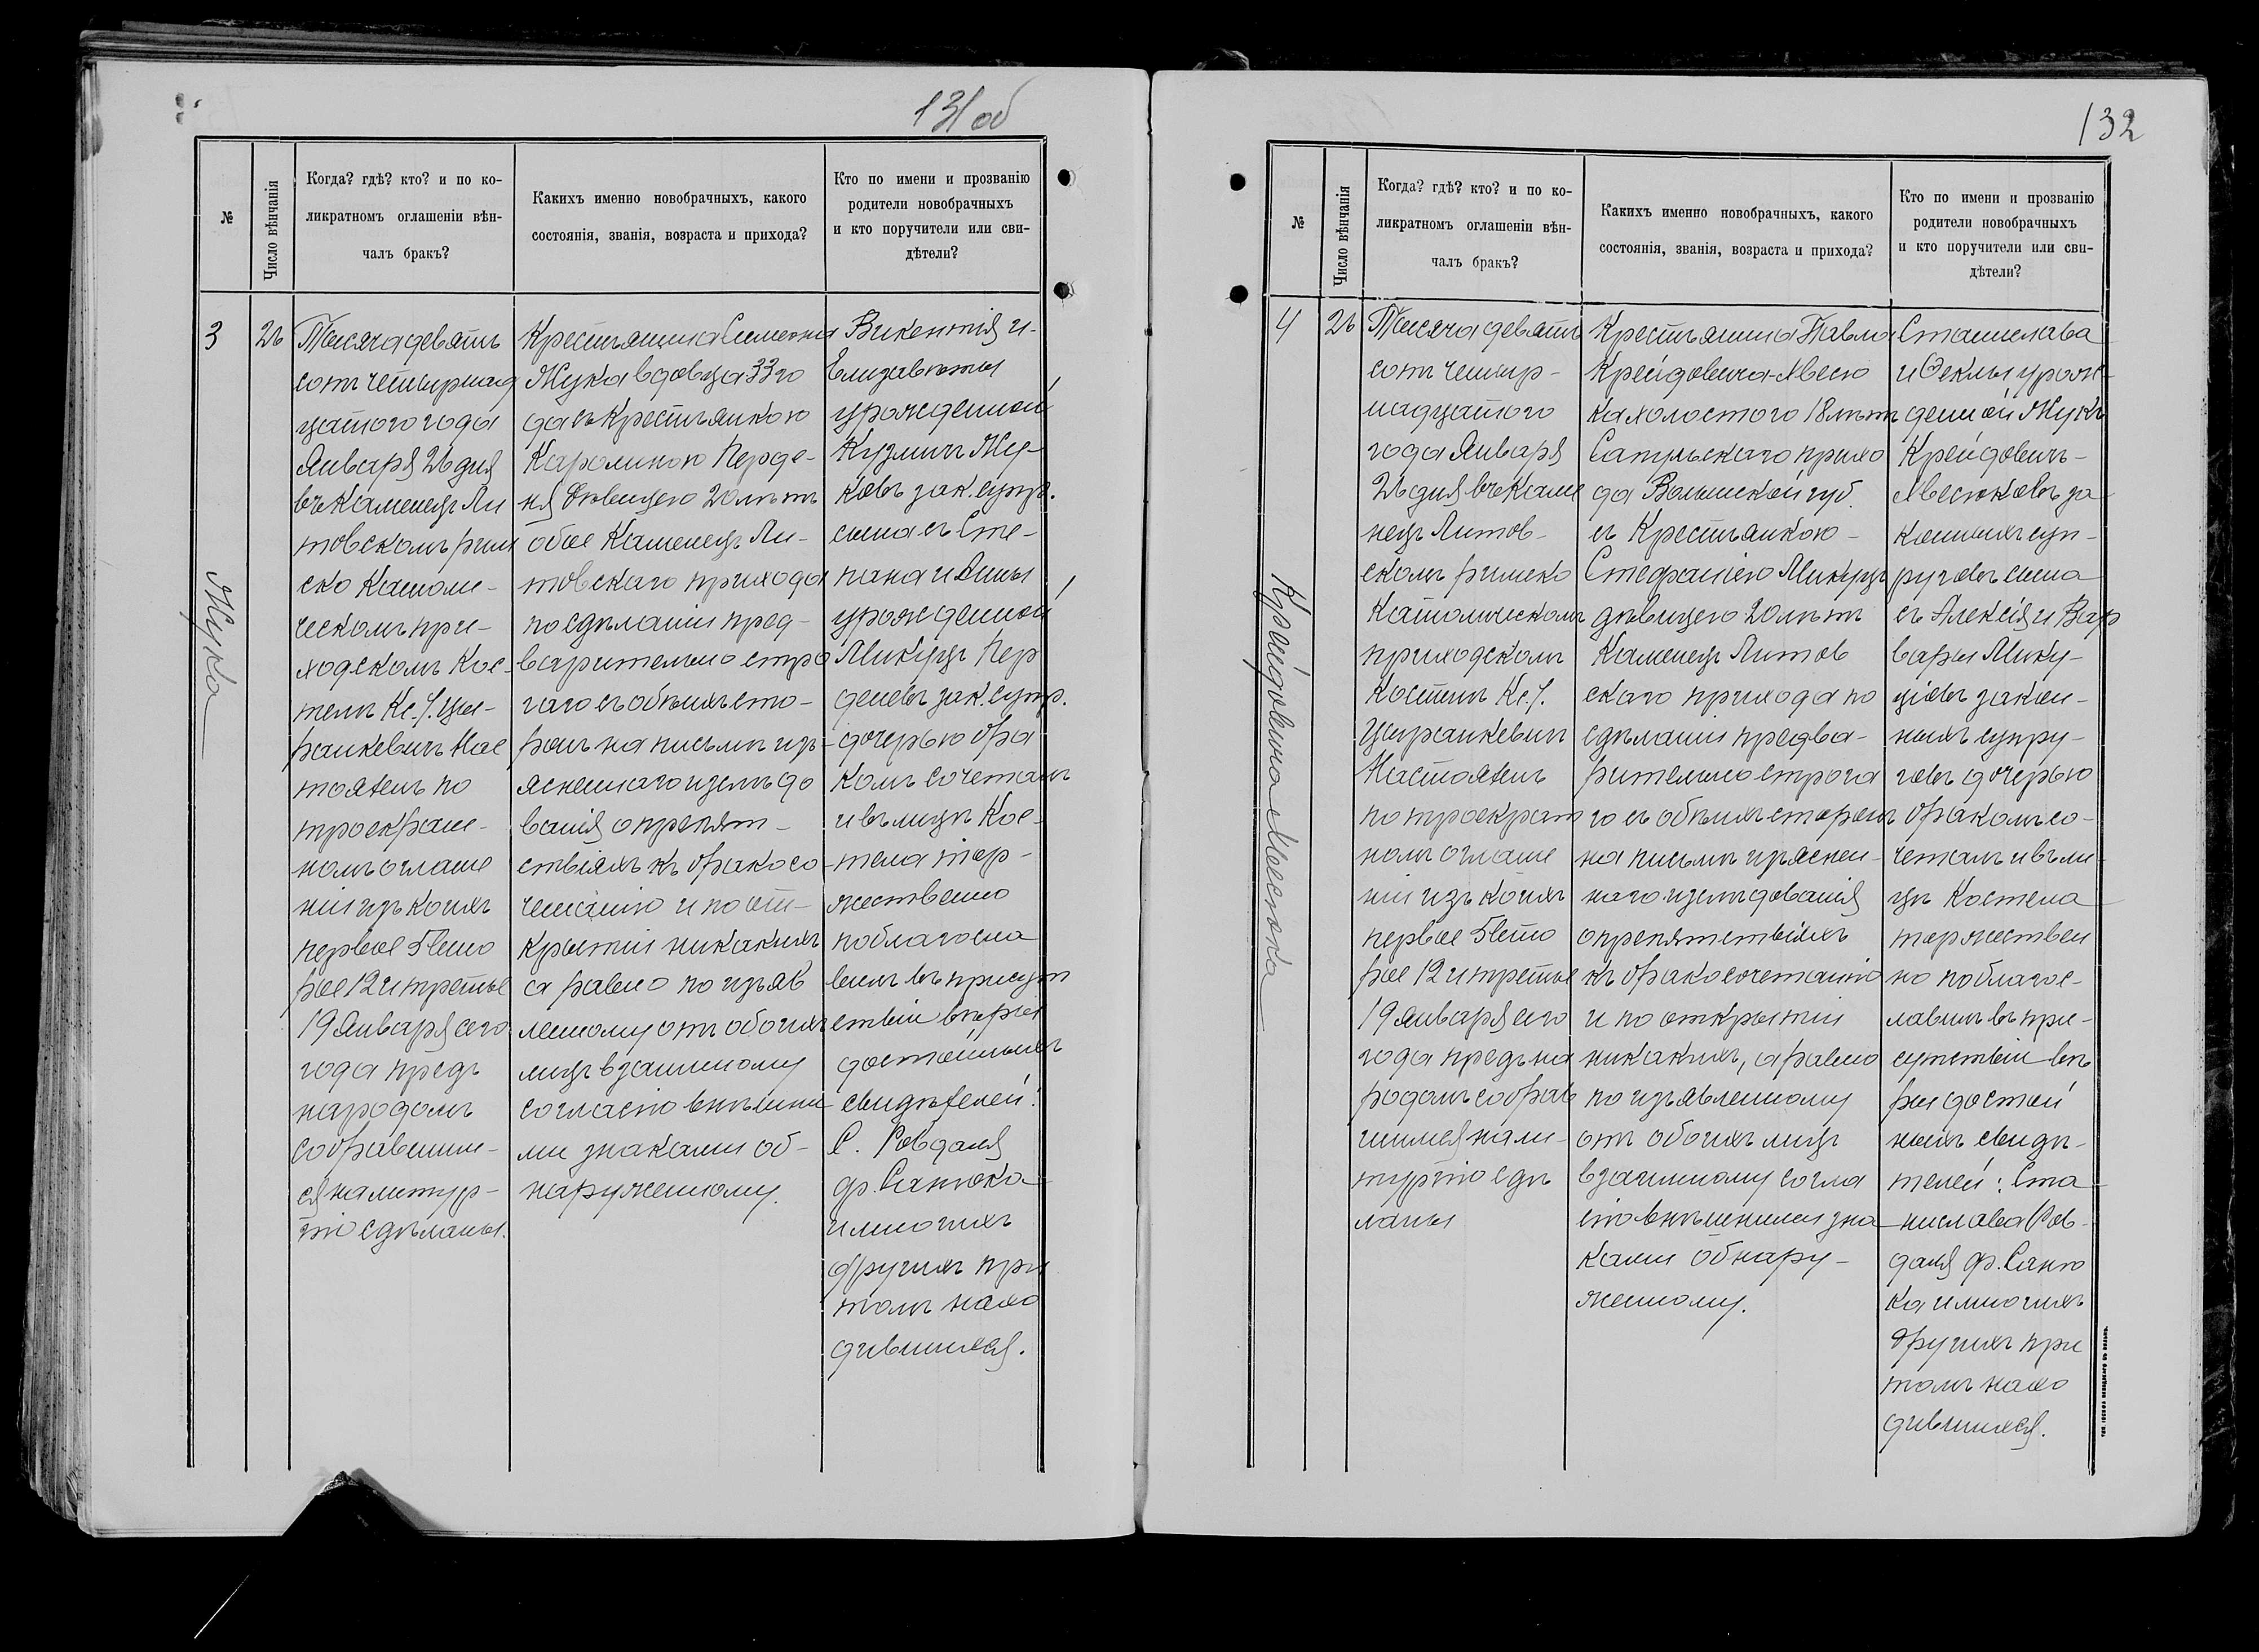 131об
№
Число вѣнчанія
Когда? гдѣ? кто? и по ко-
ликратномъ оглашеніи вѣн-
чалъ бракъ?
Какихъ именно новобрачныхъ, какого
состоянія, званія, возраста и прихода?
Кто по имени и прозванію
родители новобрачныхъ
и кто поручители или сви-
дѣтели?
3
26
Жука
Тысяча девять
сотъ четырнад
цатого года
Января 26 дня
въ Каменецъ Ли
товскомъ рим
ско Католи-
ческомъ при-
ходскомъ Кос-
телѣ Кс. І. Цы-
ранкевичъ Нас
тоятель по
троекрат-
номъ оглаше
ніи изъ коихъ
первое 5 вто
рое 12 и третье
19 Января сего
года предъ
народомъ
собравшим-
ся на литур-
гію сдѣланы.
Крестьянина Симеона
Жука вдовца 33 го
да съ Крестьянкою
Каролиною Перде-
ня дѣвицею 20 лѣтъ
обое Каменецъ Ли-
товскаго прихода
по сдѣланіи пред-
варительно стро
гаго съ обѣихъ сто-
ронъ на письмѣ изъ-
ясненнаго изслѣдо
ванія о препят-
ствіяхъ къ бракосо
четанію и по от-
крытіи никакихъ
а равно по изъяв
ленному отъ обоихъ
лицъ взаимному
согласію внѣшни
ми знаками об-
наруженному.
Викентія и
Елизаветы
урожденной
Кузмичъ Жу-
ковъ зак. супр.
сына съ Сте-
пана и Анны
урожденной
Микуцъ Пер
деневъ зак. супр.
дочерью бра
комъ сочеталъ
и въ лицѣ Кос-
тела тор-
жественно
поблагосла
вилъ въ присут
ствіи вѣры
достойныхъ
свидѣтелей:
С. Равданя
Ф. Санюка
и многихъ
другихъ при
томъ нахо
дившихся.
132
№
Число вѣнчанія
Когда? гдѣ? кто? и по ко-
ликратномъ оглашеніи вѣн-
чалъ бракъ?
Какихъ именно новобрачныхъ, какого
состоянія, званія, возраста и прихода?
Кто по имени и прозванію
родители новобрачныхъ
и кто поручители или сви-
дѣтели?
4
26
Тысяча девять
сотъ четыр-
надцатого
года Января
26 дня въ Каме
нецъ Литов-
скомъ римско
Католическомъ
приходскомъ
Костелѣ Кс. І.
Цыранкевичъ
Настоятель
по троекрат
номъ оглаше
ніи изъ коихъ
первое 5 вто
рое 12 и третье
19 Января сего
года предъ на
родомъ собрав
шимся на ли-
тургію сдѣ
ланы
Крестьянина Павла
Крейдовича-
ка холостого 18 лѣтъ
прихо
да Волынской губ.
съ Крестьянкою
Стефаніею Микуцъ
дѣвицею 20 лѣтъ
Каменецъ Литов
скаго прихода по
сдѣланіи предва-
рительно строга
го съ обѣихъ сторонъ
на письмѣ изъяснен-
наго изслѣдованія
о препятствіяхъ
къ бракосочетанію
и по открытіи
никакихъ, а равно
по изъявленному
отъ обоихъ лицъ
взаимному согла
сію внѣшними зна
ками обнару-
женному.
Станислава
и Феклы урож-
денной Жукъ
Крейдовичъ-
за
конныхъ суп-
руговъ сына
съ Алексія и Вар
вары Мику-
цовъ закон-
ныхъ супру-
говъ дочерью
бракомъ со-
четалъ и въ ли-
цѣ Костела
торжествен
но поблагос-
лавилъ въ при-
сутствіи вѣ
ры достой
ныхъ свидѣ-
телей: Ста
нислава Рав-
даня Ф. Саню
ка и многихъ
другихъ при
томъ нахо
дившихся.